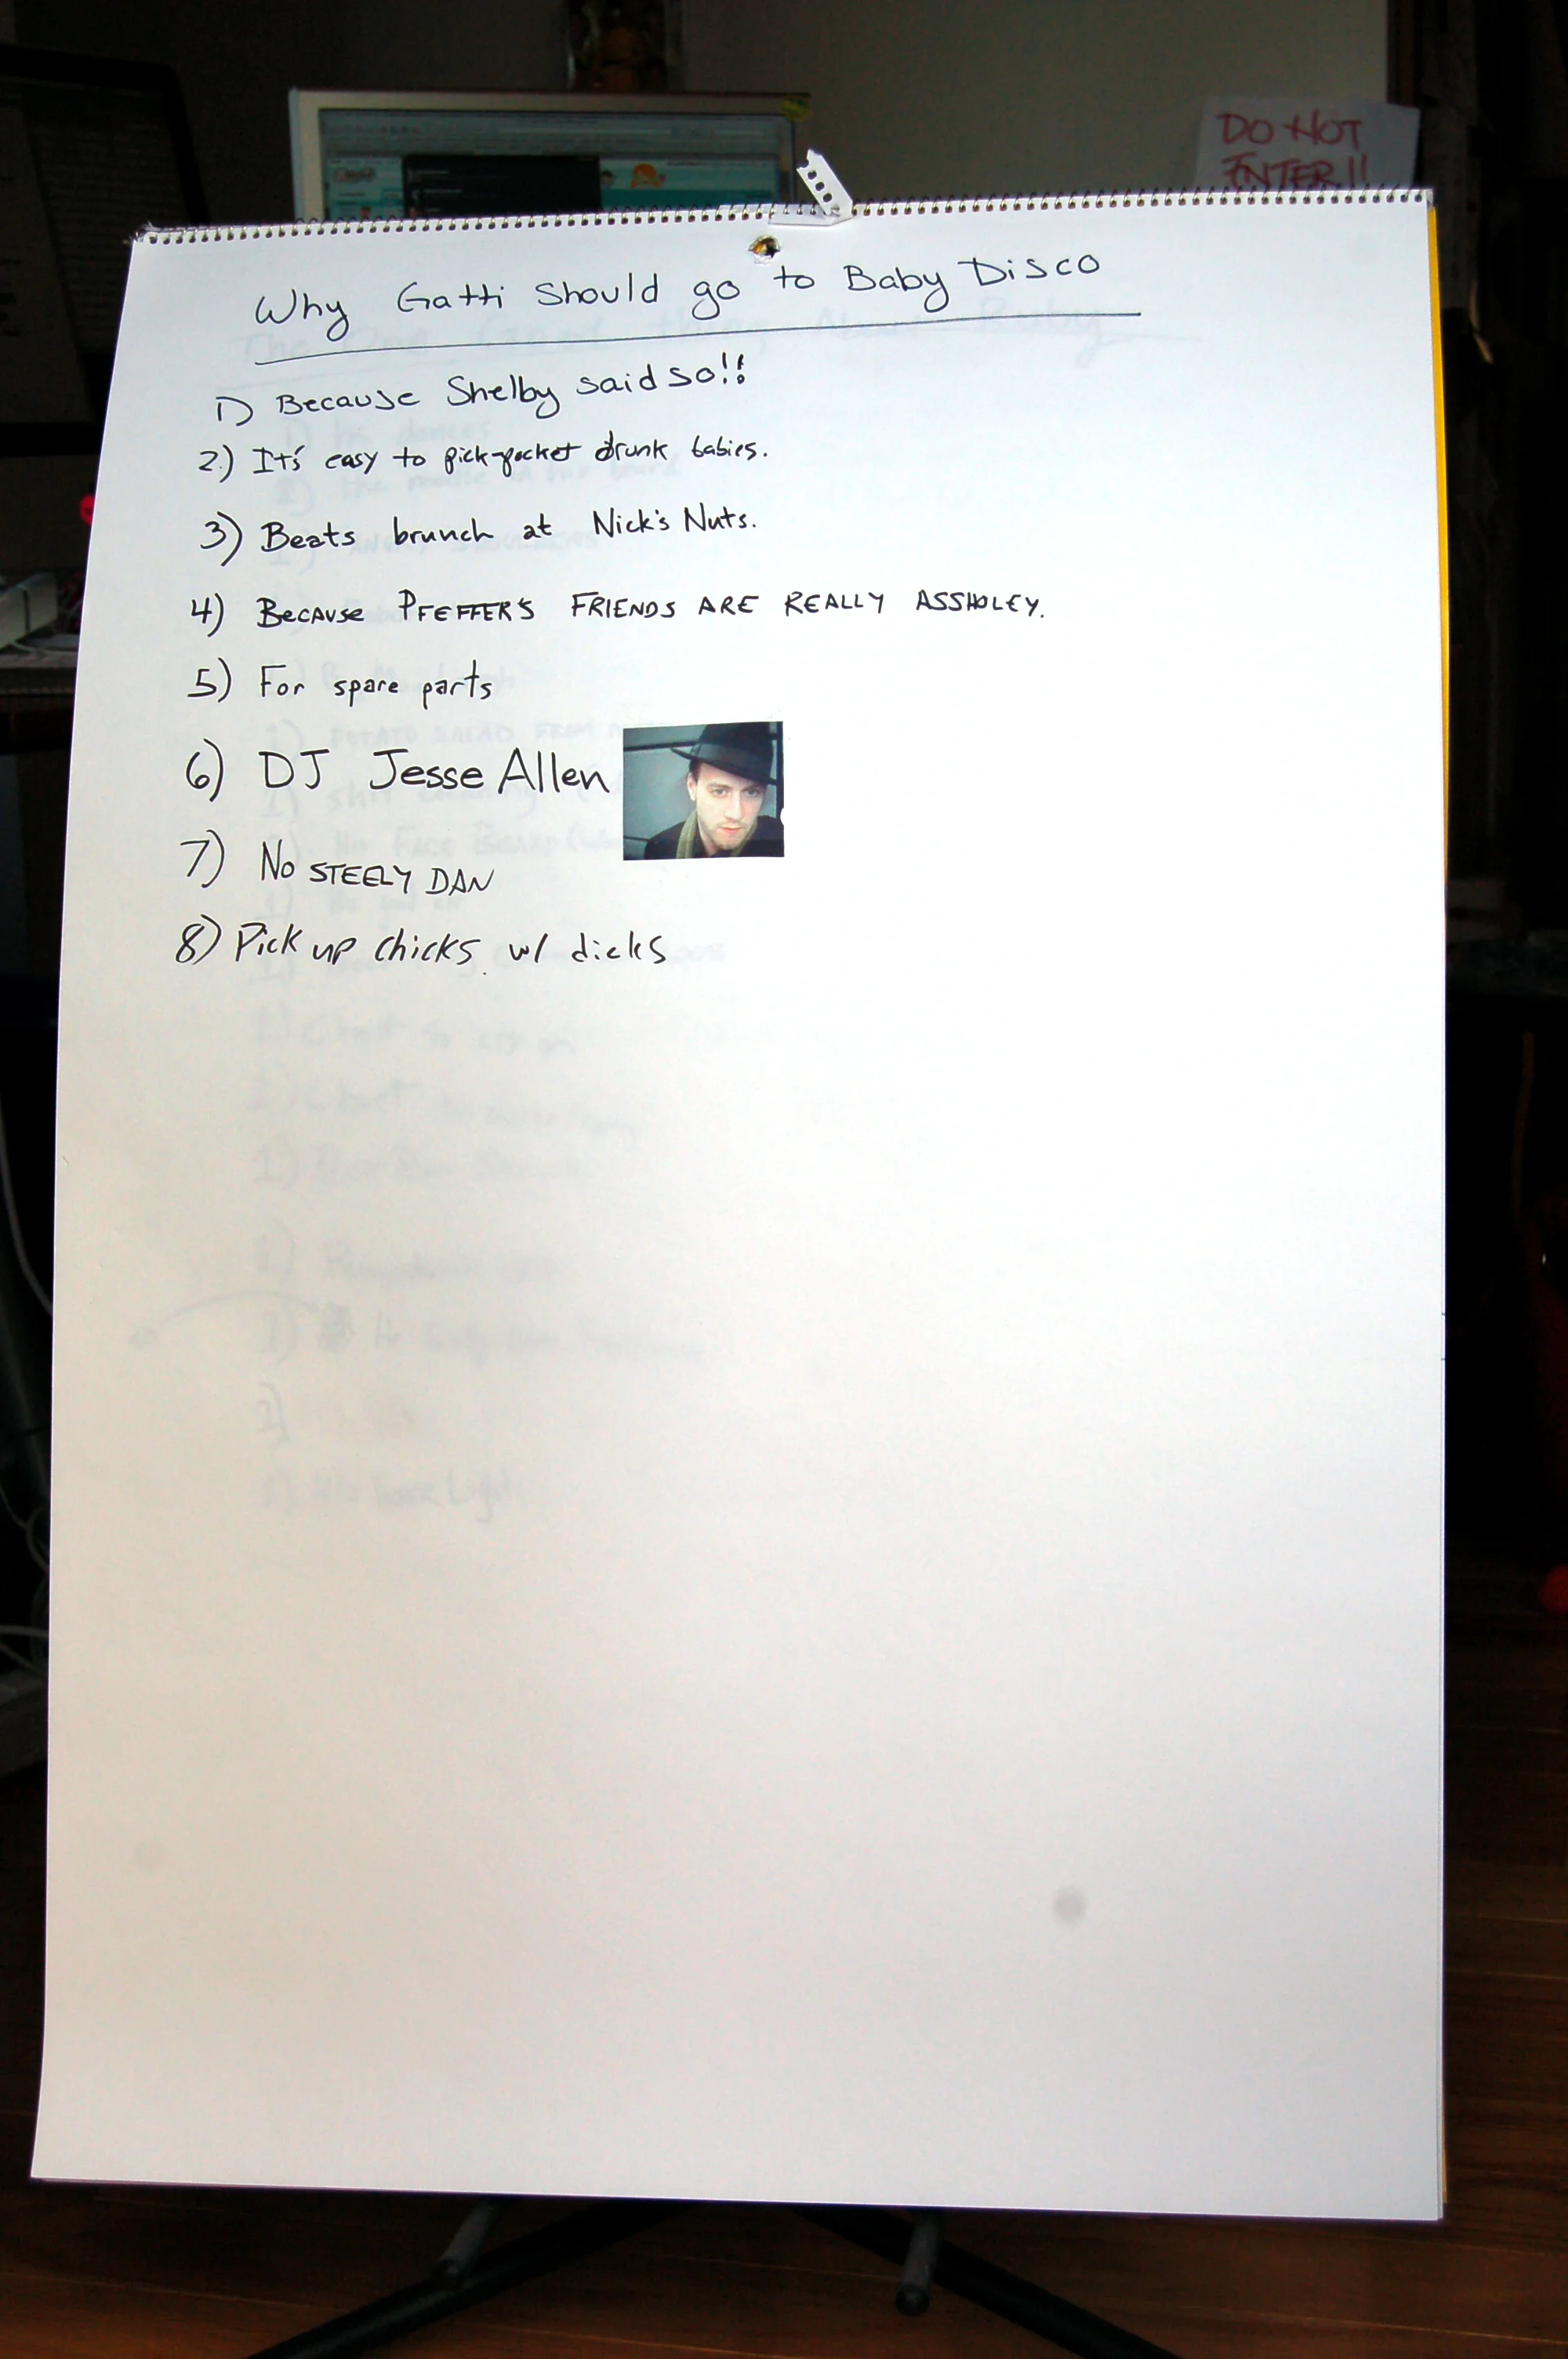 DO NOT
ENTER!!
Why Gatti Should go to Baby Disco
1) Because Shelby said so!!
2.) It's easy to pick-pocket drunk babies.
3) Beats brunch at Nick's Nuts.
4) BECAUSE PFEFFER'S FRIENDS ARE REALLY ASSHOLEY.
5) For spare parts
6) DJ Jesse Allen
7) No STEELY DAN
8) Pick up chicks w/ dicks